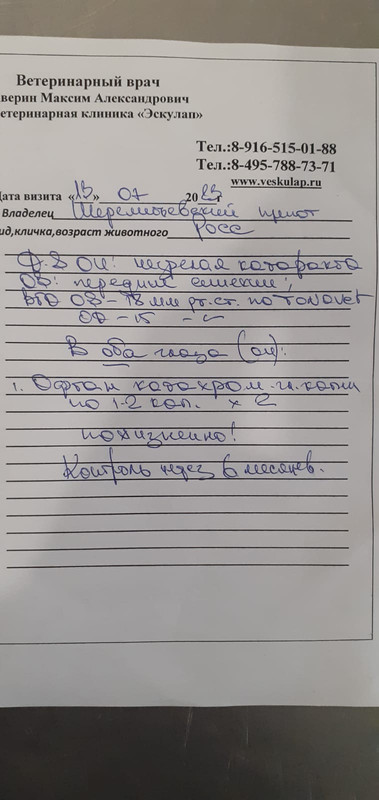 Ветеринарный врач
верин Максим Александрович
етеринарная клиника «Эскулап»
Тел.:8-916-515-01-88
Тел.:8-495-788-73-71
www.veskulap.ru
Дата визита «13» 07 2023
Владелец Шереметьевский приют
ид,кличка,возраст животного Росс
Ф.S OU: незрелая катаракта
OS: передние синехии;
ВГД OS - 18 мм рт.ст. по TonoVet
OD - 15
В оба глаза (OU):
1. Офтан катахром гл. капли
по 1-2 кап. х 2
пожизненно!
Контроль через 6 месяцев.